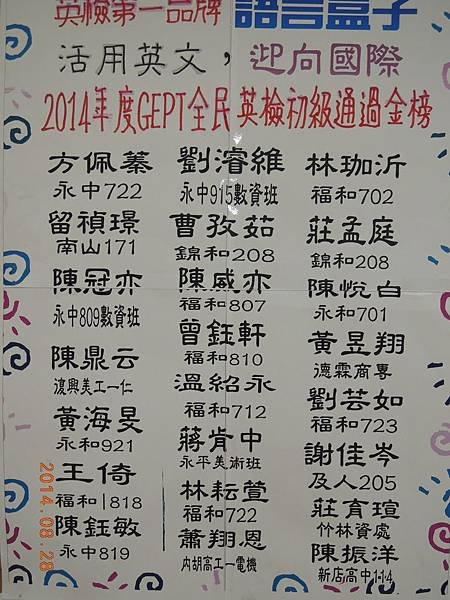 英檢第一品牌 語言盒子
活用英文，迎向國際
2014年度GEPT全民英檢初級通過金榜
方佩蓁 劉濬維 林珈沂
永中722 永中915數資班 福和702
留禎璟 曹孜茹 莊孟庭
南山171 錦和208 錦和208
陳冠亦 陳威亦 陳悅白
永中809數資班 福和807 永和701
陳鼎云 曾鈺軒 黃昱翔
復興美工一仁 福和810 德霖商專
黃海旻 溫紹永 劉芸如
永和921 福和712 福和723
王倚 蔣肯中 謝佳岑
福和818 永平美術班 及人205
陳鈺敏 林耘萱 莊育瑄
永中819 福和722 竹林資處
蕭翔恩 陳振洋
內胡高工一電機 新店高中114
2014.08.28